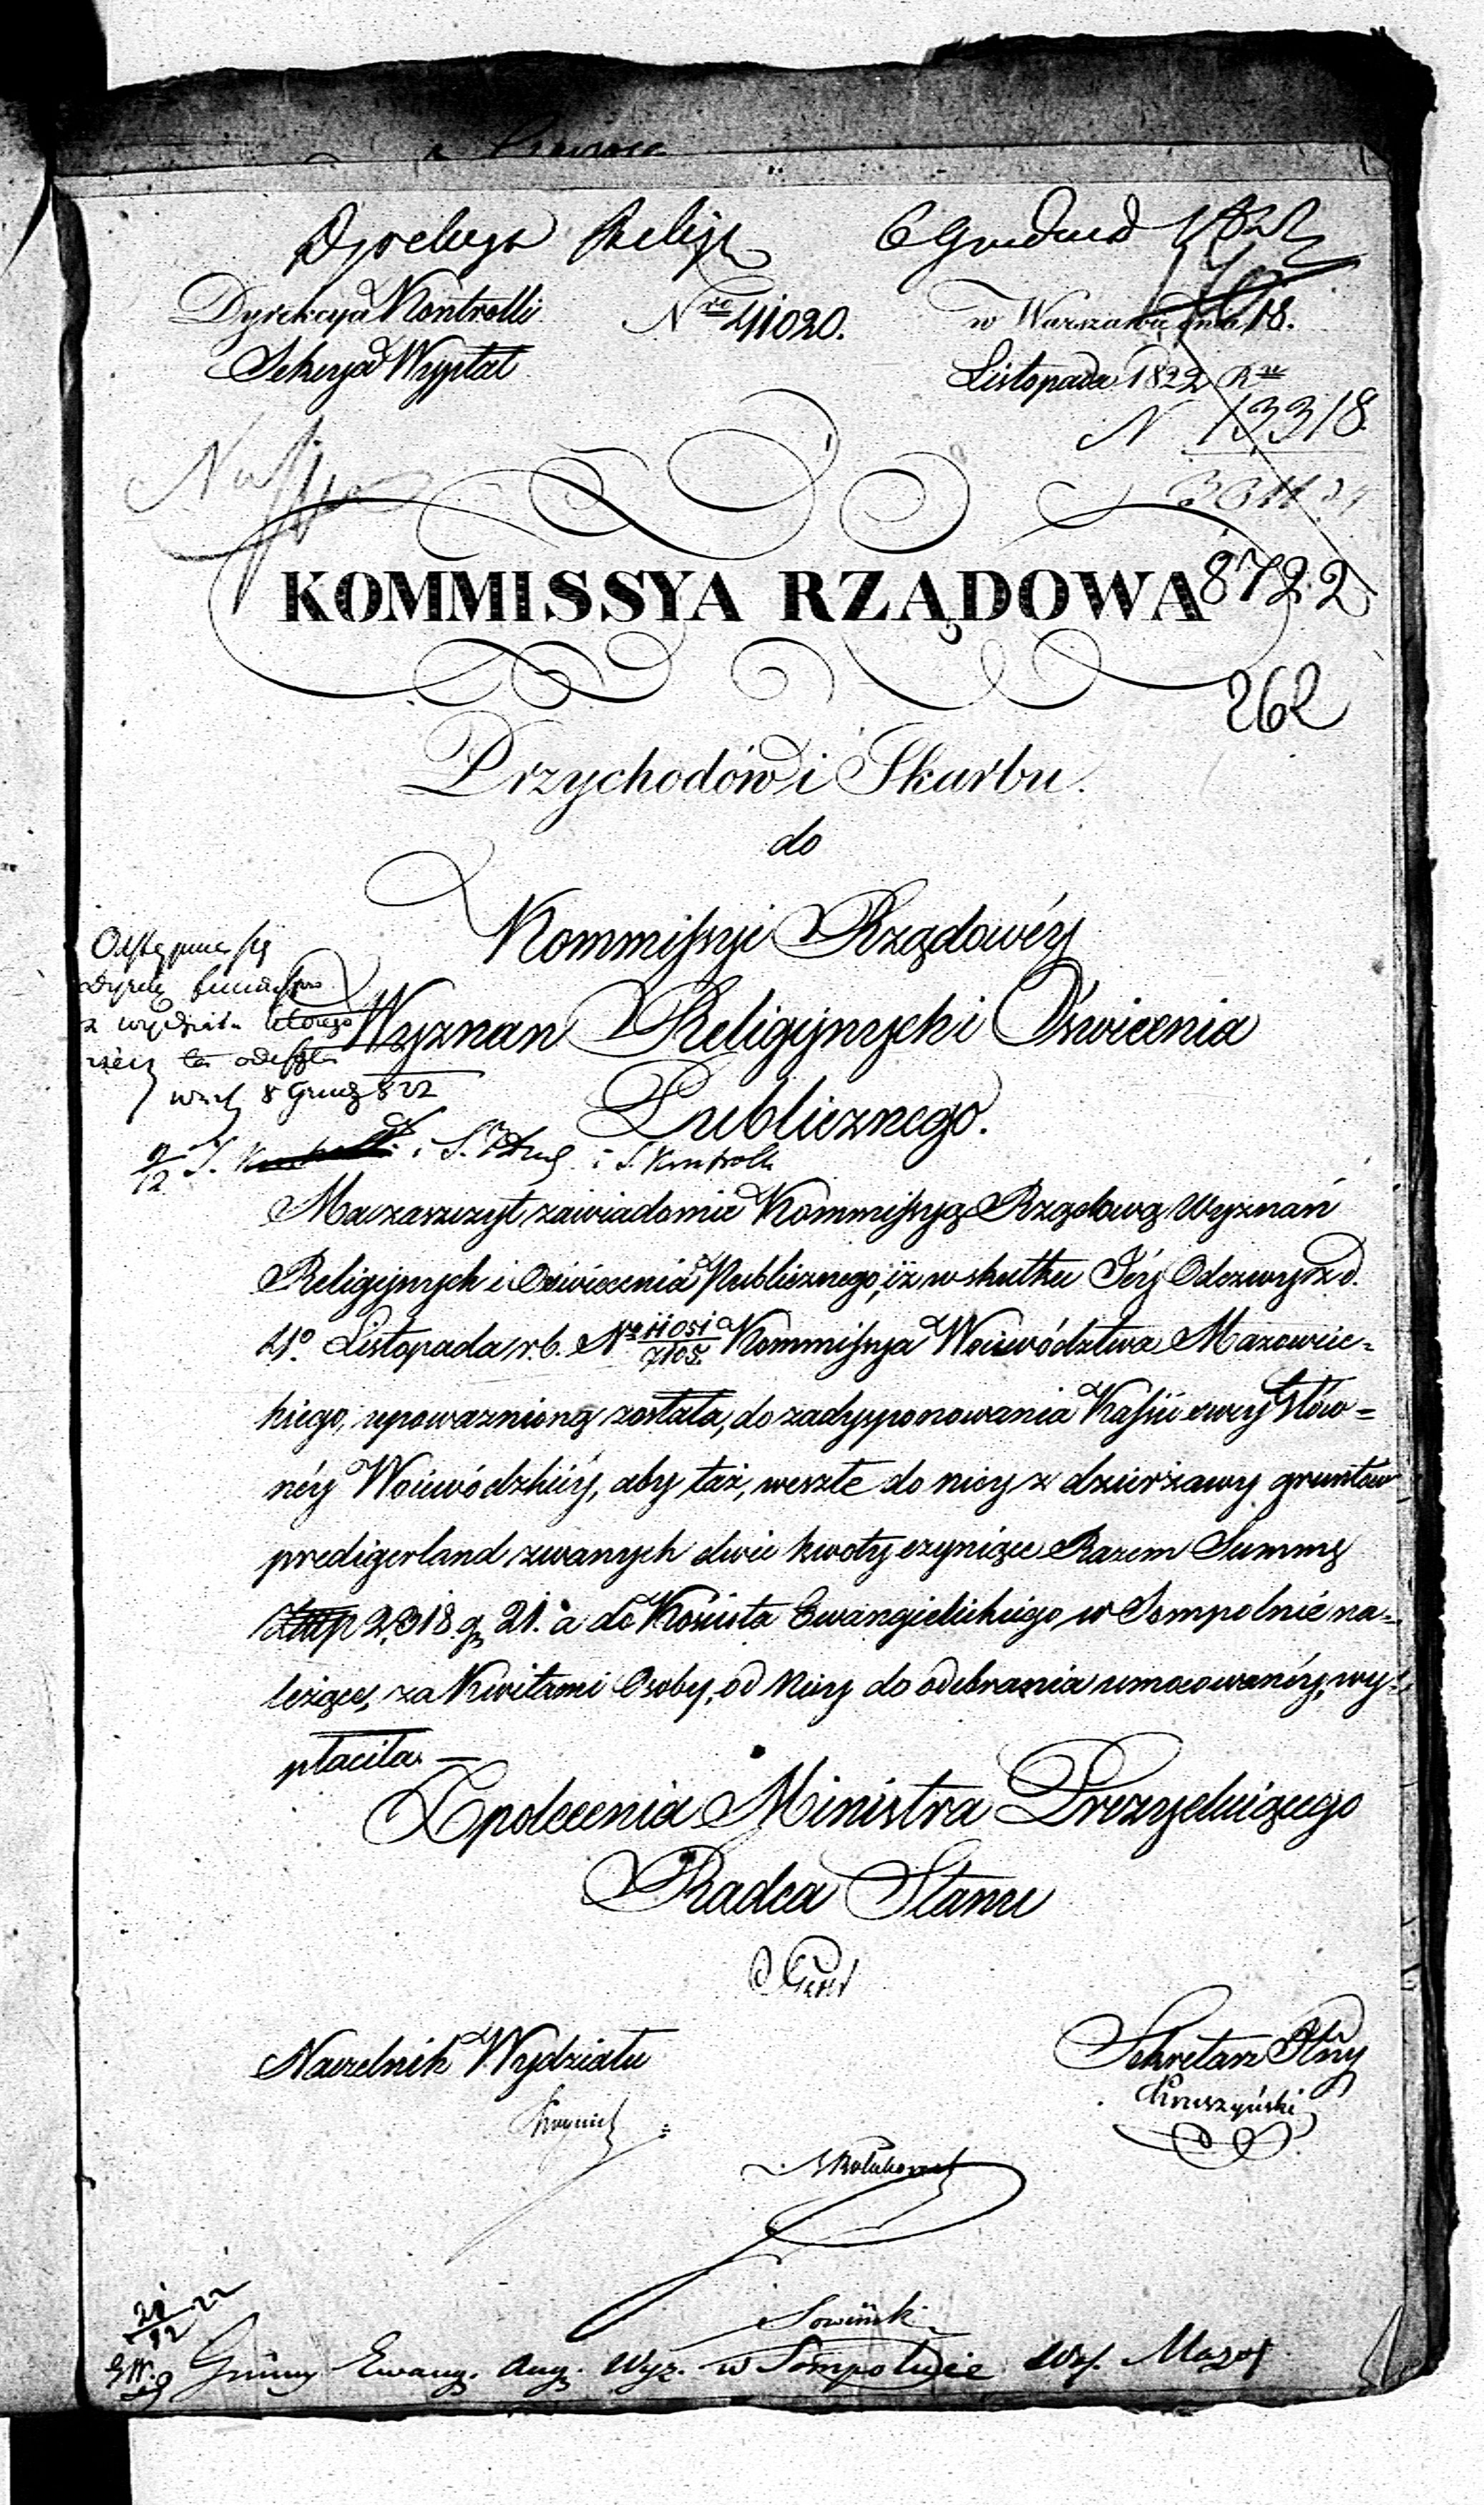 6 Grudnia 1822
Dyrekcya Kontrolli Nro 41020. w Warszawie dnia 18.
Sekcya Wypłat Listopada 1822 R.
N 13318.
KOMMISSYA RZĄDOWA 8722
262
Przychodów i Skarbu.
do
Kommissyi Rządowéy
Wyznań Religijnych i Oświecenia
Publicznego.
Odstępuie się
z wydziału którego
rzecz ta odeszła
8 Grud 822
9/12 i S. Kontroll
Ma zaszczyt zawiadomić Kommissyą Rządową Wyznań
Religijnych i Oświecenia Publicznego, iż w skutku Jéy Odezwy z d.
4o. Listopada r.b. Nro 11051/7105. Kommissya Woiewództwa Mazowiec=
kiego, upoważnioną została, do zadysponowania Kassie swey Głów=
néy Woiewódzkiéy, aby taż, weszłe do niey z dzierżawy gruntów
predigerland zwanych dwie kwoty czyniące Razem Summę
Złłp 2,318 g 21. a do Kościoła Ewangielickiego w Sompolnie na=
leżące, za Kwitami Osoby, od Niey do odebrania umocowanéy, wy=
płaciła. —
Z polecenia Ministra Prezyduiącego
Radca Stanu
Naczelnik Wydziału Sekretarz Jlny
Kruszyński
Sowiński
21/12 22
Gminy Ewang. Aug. Wyz. w Sompolnie Wdz. Mazow